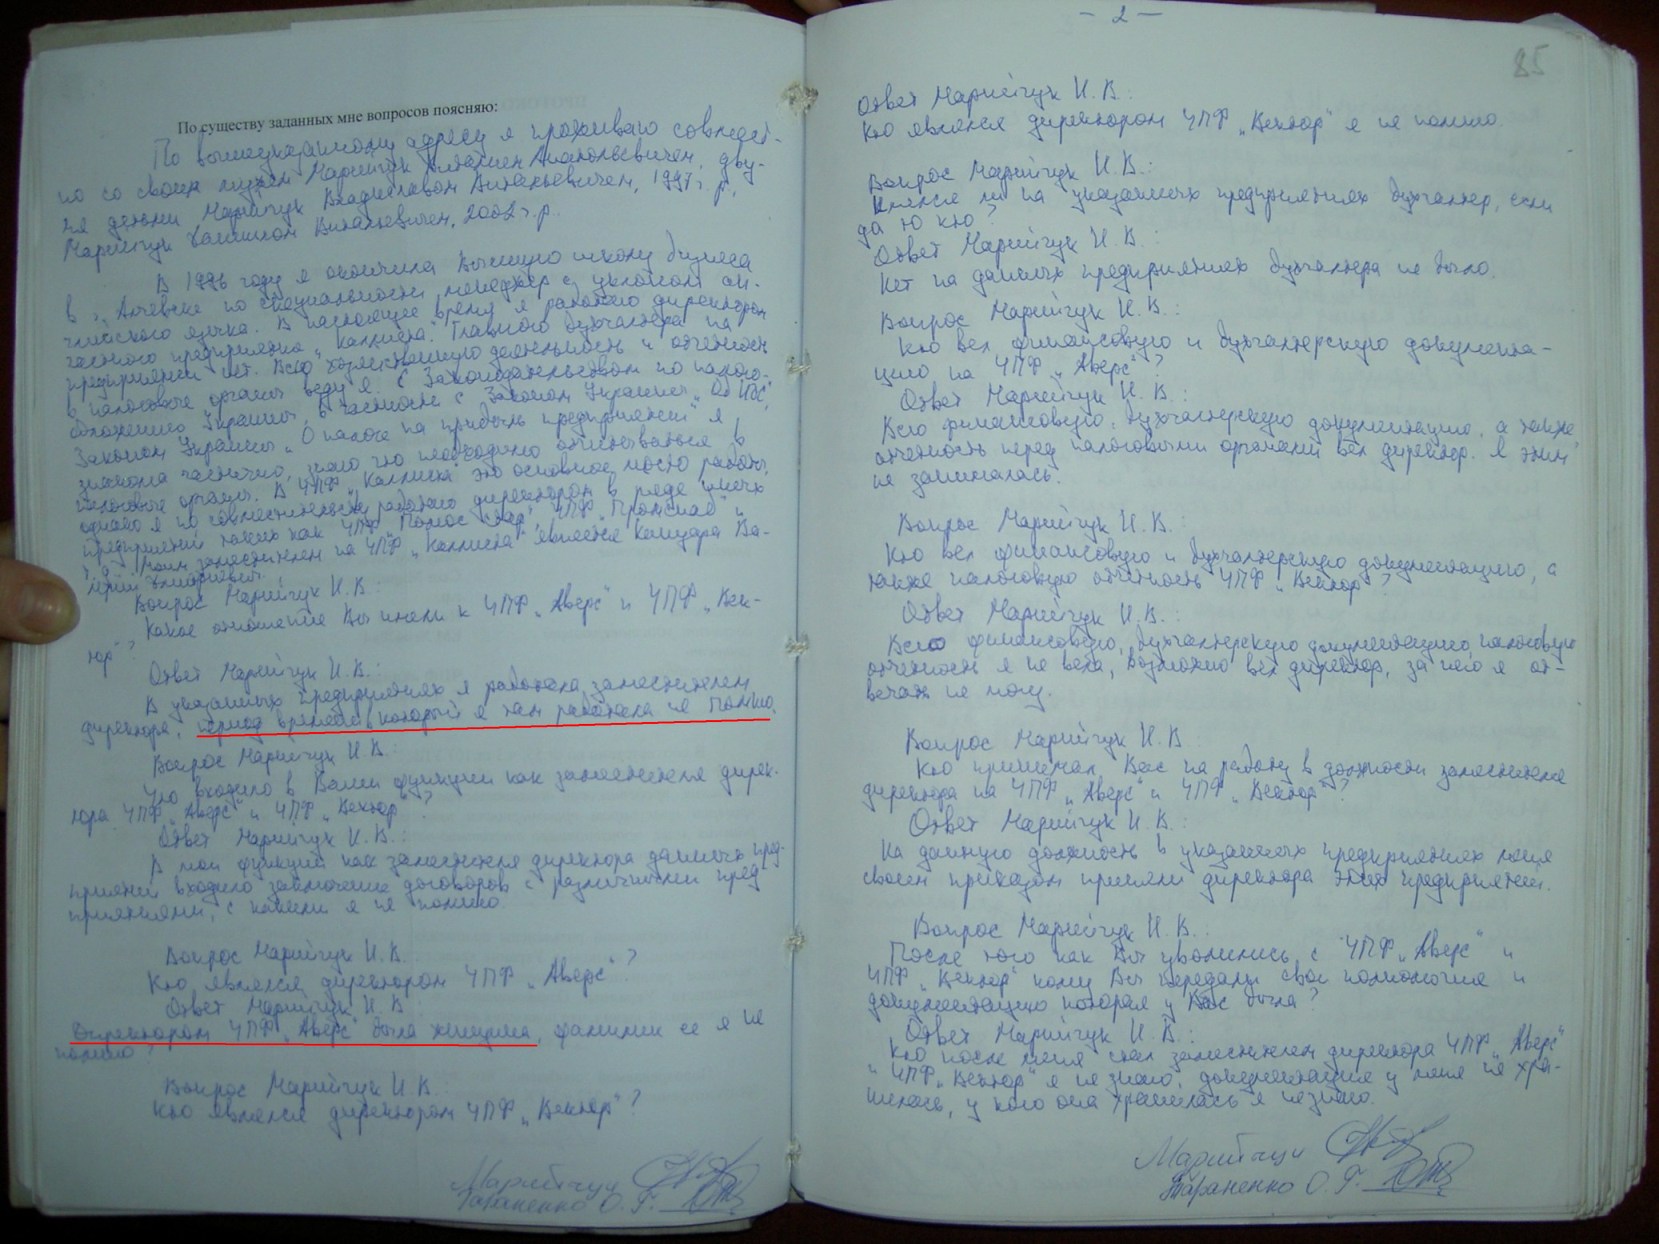 По существу заданных мне вопросов поясняю:
По вышеуказанному адресу я проживаю совмест-
но со своим мужем Марийчук Виталием Анатольевичем, дву-
мя детьми Марийчук Владиславом Витальевичем, 1997 г.р.,
Марийчук Витальевичем, 2002 г.р.
В 1996 году я окончила Высшую школу бизнеса
в г. Алчевске по специальности менеджер с уклоном ан-
глийского языка. В настоящее время я работаю директором
частного предприятия „Каллиста". Главного бухгалтера на
предприятии нет. Всю хозяйственную деятельность и отчетность
в налоговые органы веду я. С Законодательством по налого-
обложению Украины, в частности с Законом Украины „Об НДС",
Законом Украины „О налоге на прибыль предприятий" я
знакома частично, знаю что необходимо отчитываться в
налоговые органы. В ЧПФ „Каллиста" это основное место работы,
однако я по совместительству работаю директором в ряде иных
предприятий таких как ЧПФ „Полюс", ЧПФ „Промснаб" и
Моим заместителем на ЧПФ „Каллиста" является Кашуара Ва-
лерий Дмитриевич.
Вопрос Марийчук И.В.:
Какое отношение Вы имели к ЧПФ „Аверс" и ЧПФ „Век-
тор"?
Ответ Марийчук И.В.:
В указанных предприятиях я работала заместителем
директора, период времени, который я там работала не помню.
Вопрос Марийчук И.В.:
Что входило в Ваши функции как заместителя дирек-
тора ЧПФ „Аверс" и ЧПФ „Вектор"?
Ответ Марийчук И.В.:
В мои функции как заместителя директора данных пред-
приятий входило заключение договоров с различными пред
приятиями, с какими я не помню.
Вопрос Марийчук И.В.:
Кто являлся директором ЧПФ „Аверс"?
Ответ Марийчук И.В.
Директором ЧПФ „Аверс" была женщина, фамилии ее я не
помню?
Вопрос Марийчук И.В.:
Кто являлся директором ЧПФ „Вектор"?
Марийчук
Тараненко О.Г.
– 2 –
85
Ответ Марийчук И.В.:
Кто являлся директором ЧПФ „Вектор" я не помню.
Вопрос Марийчук И.В.:
Имелся ли на указанных предприятиях бухгалтер, если
да то кто?
Ответ Марийчук И.В.:
Нет на данных предприятиях бухгалтера не было.
Вопрос Марийчук И.В.:
Кто вел финансовую и бухгалтерскую документа-
цию на ЧПФ „Аверс"?
Ответ Марийчук И.В.:
Всю финансовую, бухгалтерскую документацию, а также
отчетность перед налоговыми органами вел директор. Я этим
не занималась.
Вопрос Марийчук И.В.:
Кто вел финансовую и бухгалтерскую документацию, а
также налоговую отчетность ЧПФ „Вектор"?
Ответ Марийчук И.В.:
Всю финансовую, бухгалтерскую документацию, налоговую
отчетность я не вела, возможно вел директор, за него я от-
вечать не могу.
Вопрос Марийчук И.В.
Кто принимал Вас на работу в должности заместителя
директора на ЧПФ „Аверс" и ЧПФ „Вектор"?
Ответ Марийчук И.В.:
На данную должность в указанных предприятиях меня
своим приказом приняли директора этих предприятий.
Вопрос Марийчук И.В.:
После того как Вы уволились с ЧПФ „Аверс" и
ЧПФ „Вектор" кому Вы передали свои полномочия и
документацию которая у Вас была?
Ответ Марийчук И.В.:
Кто после меня стал заместителем директора ЧПФ „Аверс"
и ЧПФ „Вектор" я не знаю, документация у меня не хра-
нилась, у кого она хранилась я не знаю.
Марийчук
Тараненко О.Г.